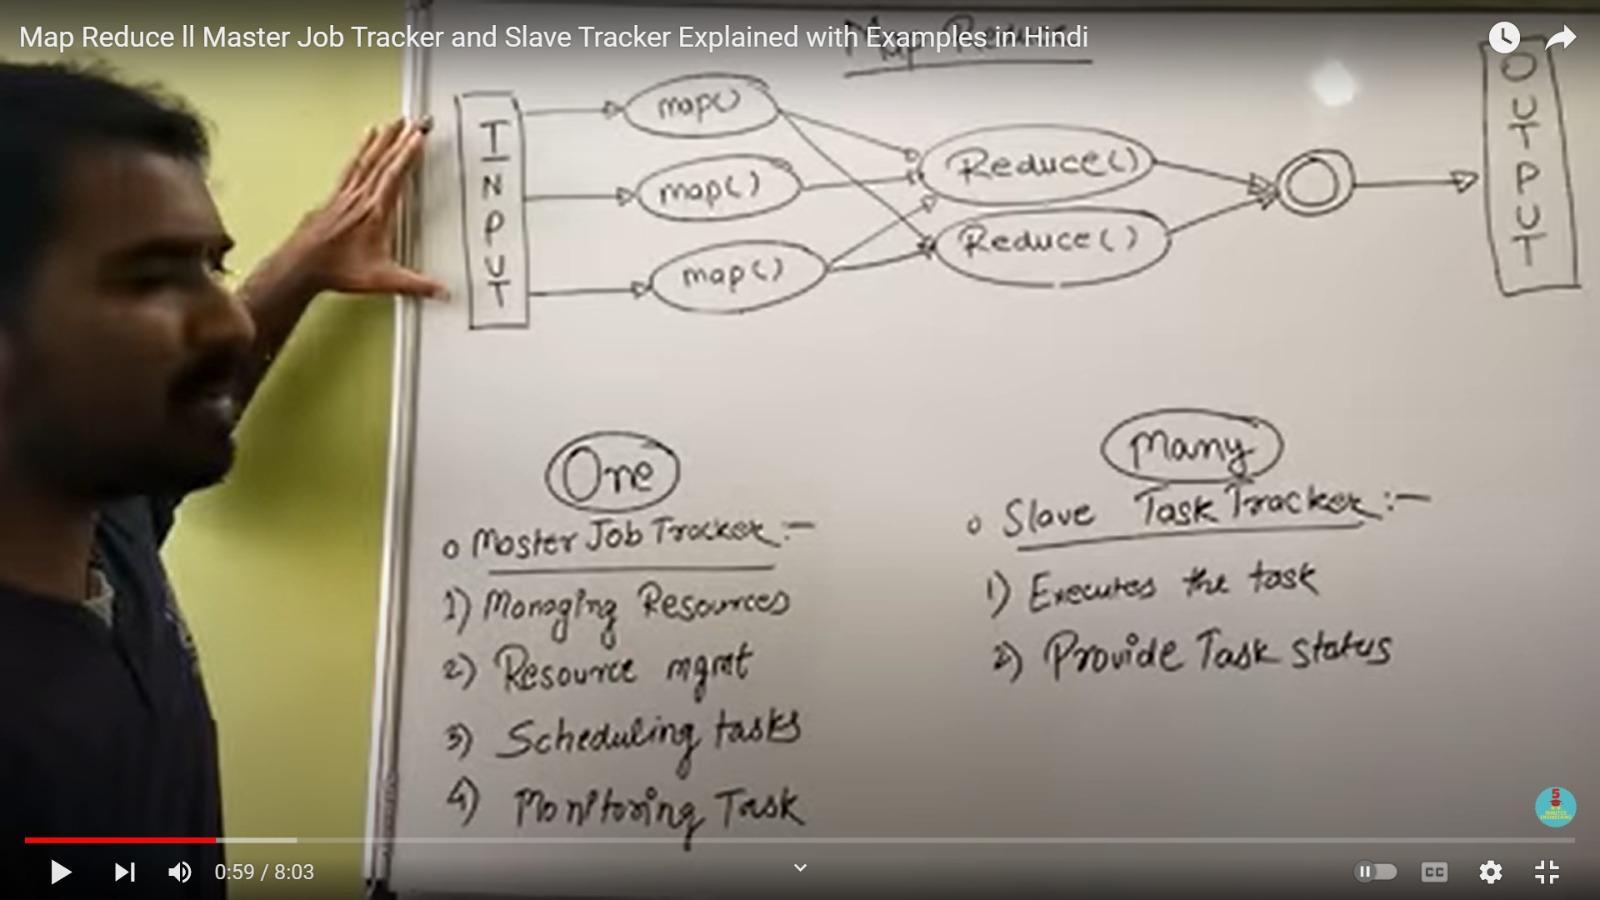 Map Reduce ll Master Job Tracker and Slave Tracker Explained with Examples in Hindi
Map Reduce
INPUT
map()
map()
map()
Reduce()
Reduce()
OUTPUT
One
o Master Job Tracker :-
1) Managing Resources
2) Resource mgmt
3) Scheduling tasks
4) Monitoring Task
Many
o Slave Task Tracker :-
1) Executes the task
2) Provide Task status
5
0:59 / 8:03
CC